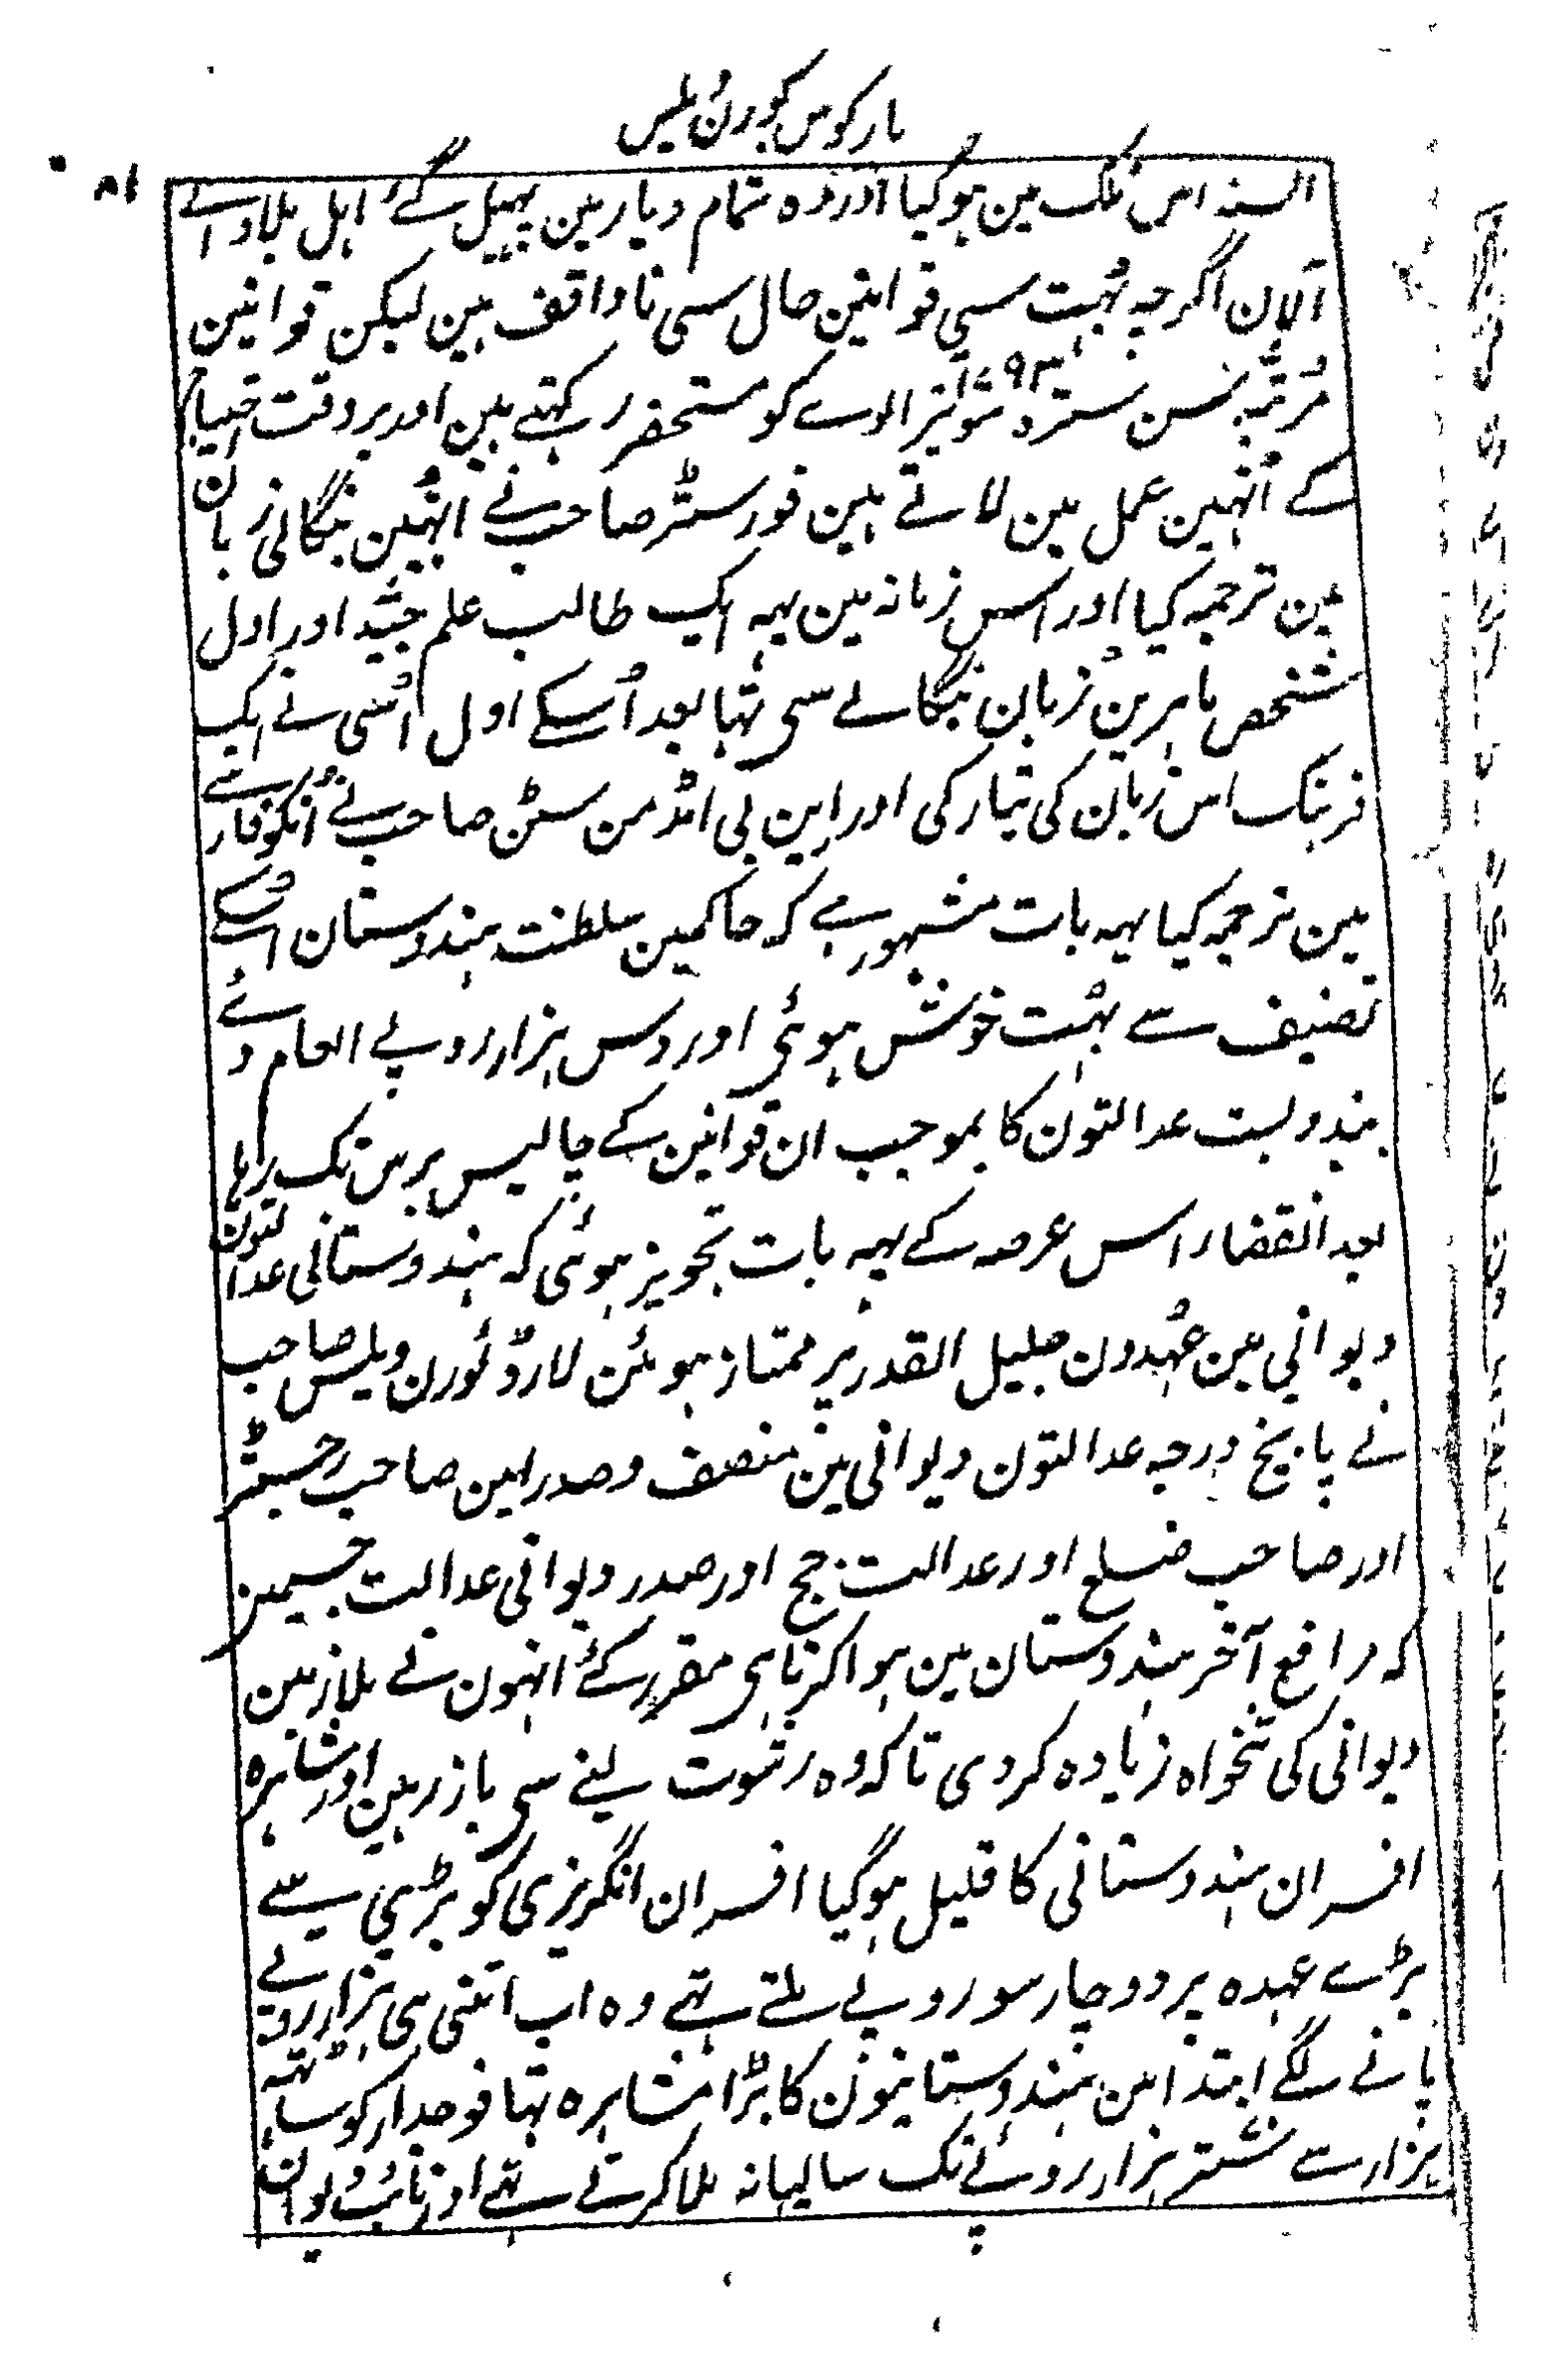 مارکوس کورن ویلس
۸۱
السنہ اس ملک مین ہو گیا اور وہ تمام دیار مین پہیل گئے اہل بلاد اسے
آلان اگرچہ بہت سی قوانین حال سی ناواقف ہین لیکن قوانین
مرتبہ سن سترہ سو ترانوے ۱۷۹۳ کو مستحضر رکہتے ہین اور بروقت احتیاج
کے اُنہین عمل مین لاتے ہین فورسٹر صاحب نے انہین بنگالی زبان
مین ترجمہ کیا اور اس زمانہ مین یہہ ایک طالب علم جید اور اول
شخص ماہرین زبان بنگالے سی تہا بعد اُسکے اول اُسی نے ایک
فرہنگ اس زبان کی تیار کی اور این بی اڈمن سٹن صاحب نے اُنکو فارسے
مین ترجمہ کیا یہہ بات مشہور ہے کہ حاکمین سلطنت ہندوستان اُسکے
تصنیف سے بہت خوش ہوئی اور دس ہزار روپے انعام دئے
بندوبست عدالتون کا بموجب ان قوانین کے چالیس برس تک رہا
بعد انقضاء اس عرصہ کے یہہ بات تجویز ہوئی کہ ہندوستانی عدالتون
دیوانی مین عہدون جلیل القدر پر ممتاز ہوئن لارڈ کورن ویلس صاحب
نے پانچ درجہ عدالتون دیوانی مین منصف و صدر امین صاحب رجسٹر
اور صاحب ضلع اور عدالت جج اور صدر دیوانی عدالت جسمین
کہ مرافع آخر ہندوستان مین ہوا کرتا ہی مقرر کئے انہون نے ملازمین
دیوانی کی تنخواہ زیادہ کردی تاکہ وہ رشوت لینے سی باز رہین اور مشاہرہ
افسران ہندوستانی کا قلیل ہو گیا افسران انگریزی کو بڑی سے
بڑے عہدہ پر دو چار سو روپے ملتے تہے وہ اب اتنی ہی ہزار روپے
پانے لگے ابتدا مین ہندوستانیون کا بڑا مشاہرہ تہا فوجدار کو ساٹہہ
ہزار سے ستر ہزار روپئے تک سالیانہ ملا کرتے تہے اور نائب دیوان